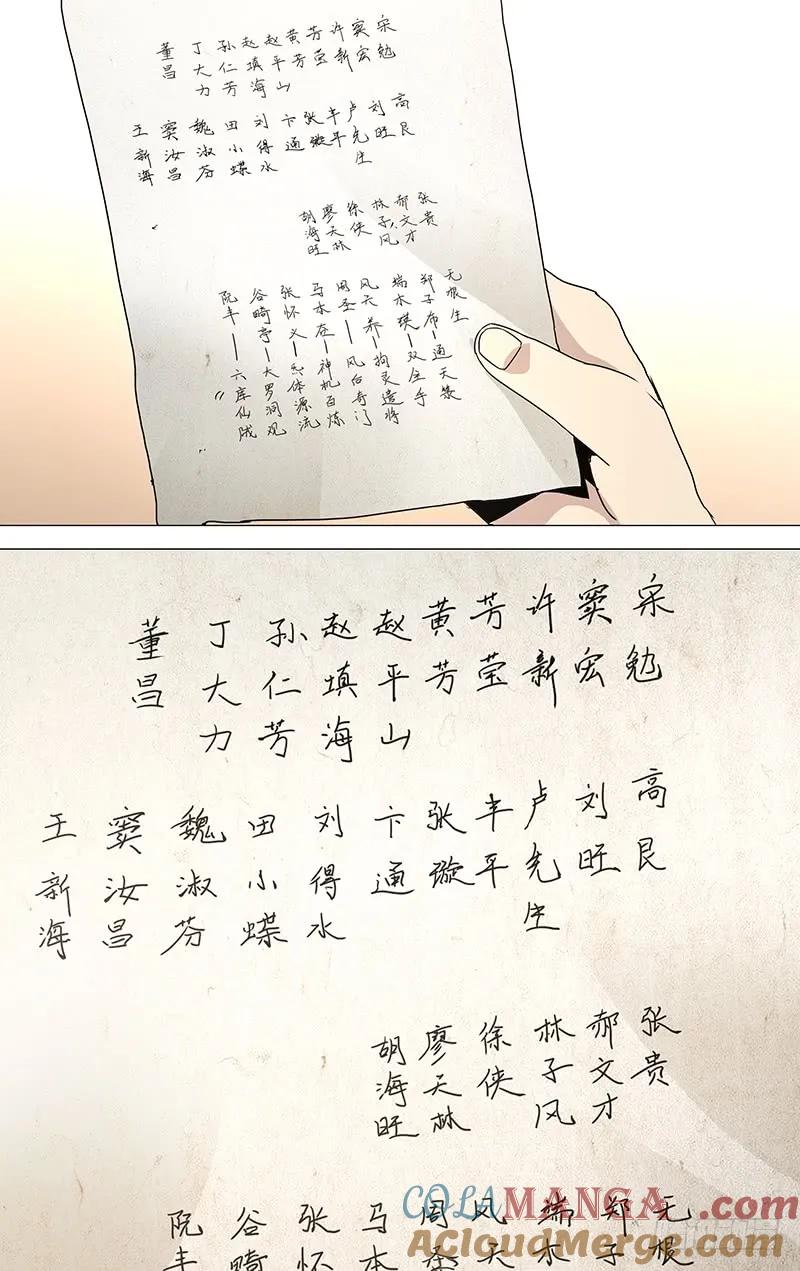 宋勉
窦宏
许新
芳莹
黄芳
赵平山
赵填海
孙仁芳
丁大力
董昌
高艮
刘旺
卢先生
丰平
张璇
卞通
刘得水
田小蝶
魏淑芬
窦汝昌
王新海
张贵
郝文才
林子风
徐侠
廖天林
胡海旺
无根生
郑子布—通天箓
端木瑛—双全手
风天养—拘灵遣将
周圣—风后奇门
马本在—神机百炼
张怀义—炁体源流
谷畸亭—大罗洞观
阮丰—六库仙贼
宋勉
窦宏
许新
芳莹
黄芳
赵平山
赵填海
孙仁芳
丁大力
董昌
高艮
刘旺
卢先生
丰平
张璇
卞通
刘得水
田小蝶
魏淑芬
窦汝昌
王新海
张贵
郝文才
林子风
徐侠
廖天林
胡海旺
无根
郑子
端木
风天
周圣
马本
张怀
谷畸
阮丰
COLAMANGA.com
AcloudMerge.com